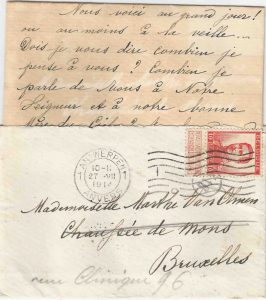 Nous voici au grand jour!
ou au moins à la veille...
Dois je vous dire combien je
pense à vous? Combien je
parle de vous à Notre
Seigneur et à notre bonne
Mère du Ciel
ANTWERPEN
1 1
27 VII
ANVERS
Mademoiselle Marthe Van
Chaussée de Mons
Bruxelles
rue Clinique 96